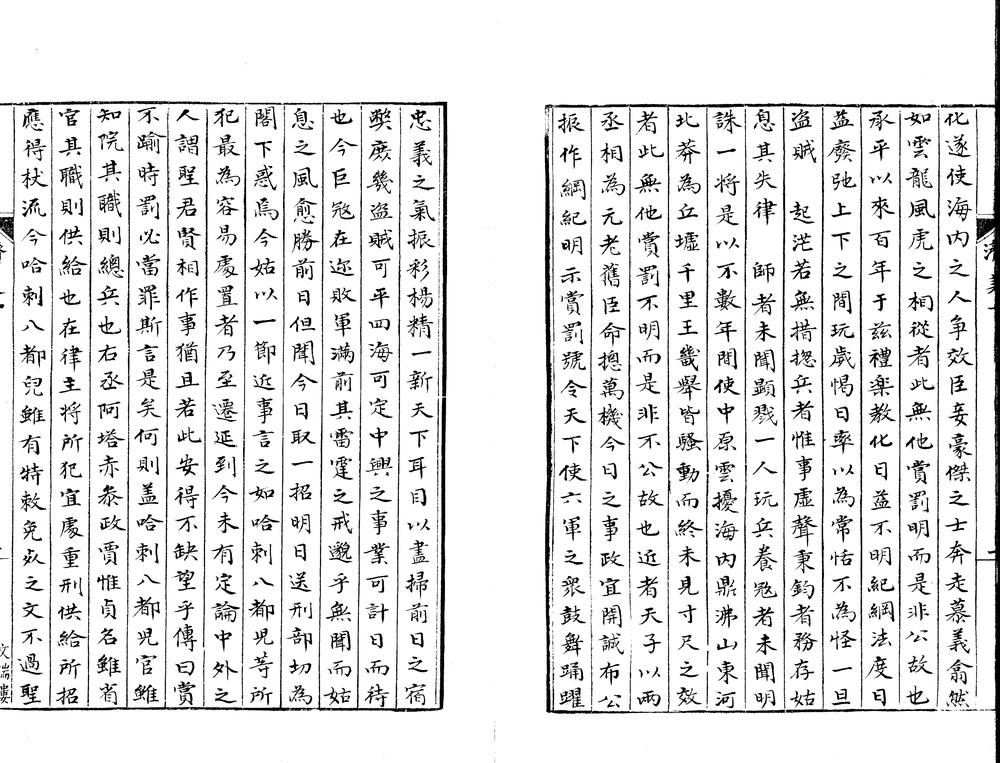 化遂使海内之人争效臣妾豪傑之士奔走慕義翕然
如雲龍風虎之相從者此無他賞罰明而是非公故也
承平以來百年于兹禮樂教化日益不明紀綱法度日
益廢弛上下之間玩歲愒日率以為常恬不為怪一旦
盗賊 起茫若無措揔兵者惟事虚聲秉鈞者務存姑
息其失律 師者未聞顯戮一人玩兵養冦者未聞明
誅一將是以不數年間使中原雲擾海内鼎沸山東河
北莽為丘墟千里王畿舉皆騷動而終未見寸尺之效
者此無他賞罰不明而是非不公故也近者天子以兩
丞相為元老舊臣命揔萬機今日之事政宜開誠布公
振作綱紀明示賞罰號令天下使六軍之衆鼓舞踊躍
忠義之氣振彩楊精一新天下耳目以盡掃前日之宿
弊庶幾盗賊可平四海可定中興之事業可計日而待
也今巨冦在迩敗軍滿前其雷霆之戒邈乎無聞而姑
息之風愈勝前日但聞今日取一招明日送刑部切為
閣下惑焉今姑以一節近事言之如哈刺八都児等所
犯最為容易處置者乃至遷延到今未有定論中外之
人謂聖君賢相作事猶且若此安得不缺望乎傳曰賞
不踰時罰必當罪斯言是矣何則盖哈刺八都児官雖
知院其職則總兵也右丞阿塔赤叅政賈惟貞名雖省
官其職則供給也在律主將所犯宜處重刑供給所招
應得杖流今哈刺八都兒雖有特敕免𣦸之文不過聖
文瑞樓